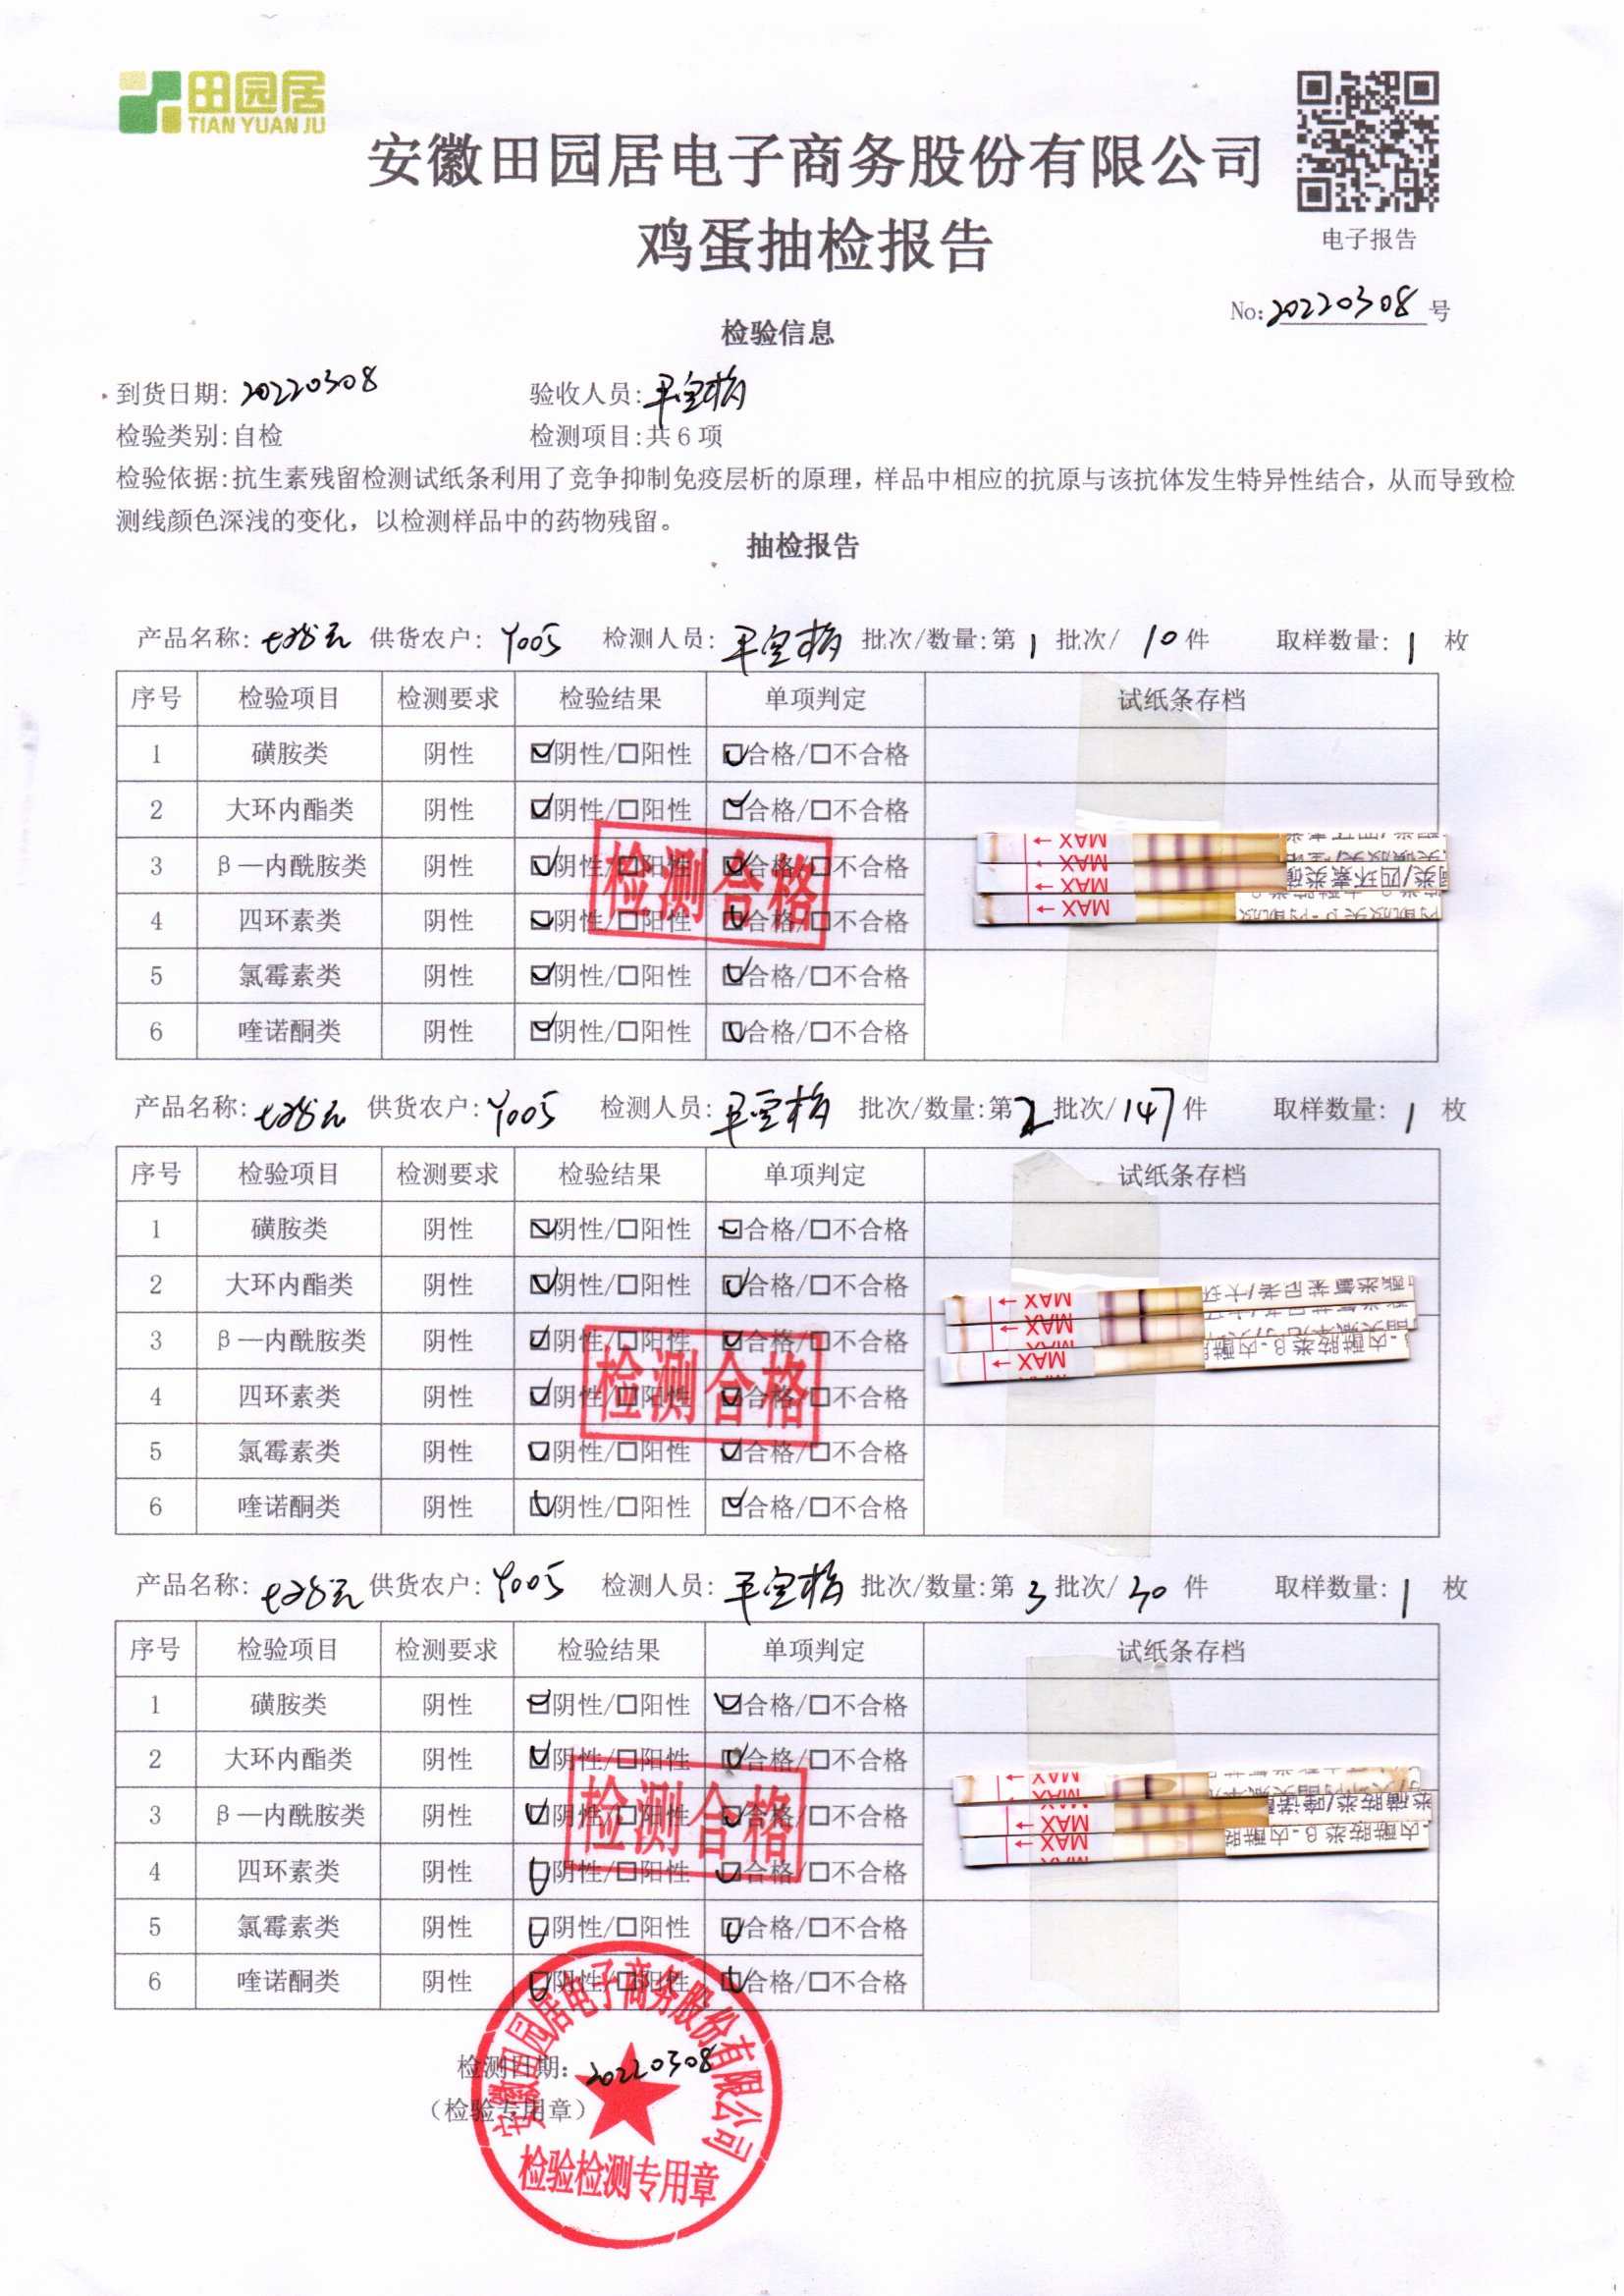 田园居
TIAN YUAN JU
安徽田园居电子商务股份有限公司
鸡蛋抽检报告
电子报告
No:20220308号
检验信息
到货日期: 20220308 验收人员:
检验类别:自检 检测项目:共6项
检验依据:抗生素残留检测试纸条利用了竞争抑制免疫层析的原理，样品中相应的抗原与该抗体发生特异性结合，从而导致检
测线颜色深浅的变化，以检测样品中的药物残留。
抽检报告
产品名称: 供货农户: Y005 检测人员: 批次/数量:第 1 批次/ 10 件 取样数量: 1 枚
序号 检验项目 检测要求 检验结果 单项判定 试纸条存档
1 磺胺类 阴性 ☑阴性/□阳性 ☑合格/□不合格
2 大环内酯类 阴性 ☑阴性/□阳性 ☑合格/□不合格
3 β—内酰胺类 阴性 ☑阴性/□阳性 ☑合格/□不合格
4 四环素类 阴性 ☑阴性/□阳性 ☑合格/□不合格
5 氯霉素类 阴性 ☑阴性/□阳性 ☑合格/□不合格
6 喹诺酮类 阴性 ☑阴性/□阳性 ☑合格/□不合格
检测合格
← MAX
← MAX
← MAX
产品名称: 供货农户: Y005 检测人员: 批次/数量:第 2 批次/ 147 件 取样数量: 1 枚
序号 检验项目 检测要求 检验结果 单项判定 试纸条存档
1 磺胺类 阴性 ☑阴性/□阳性 ☑合格/□不合格
2 大环内酯类 阴性 ☑阴性/□阳性 ☑合格/□不合格
3 β—内酰胺类 阴性 ☑阴性/□阳性 ☑合格/□不合格
4 四环素类 阴性 ☑阴性/□阳性 ☑合格/□不合格
5 氯霉素类 阴性 ☑阴性/□阳性 ☑合格/□不合格
6 喹诺酮类 阴性 ☑阴性/□阳性 ☑合格/□不合格
检测合格
← MAX
← MAX
← MAX
产品名称: 供货农户: Y005 检测人员: 批次/数量:第 3 批次/ 30 件 取样数量: 1 枚
序号 检验项目 检测要求 检验结果 单项判定 试纸条存档
1 磺胺类 阴性 ☑阴性/□阳性 ☑合格/□不合格
2 大环内酯类 阴性 ☑阴性/□阳性 ☑合格/□不合格
3 β—内酰胺类 阴性 ☑阴性/□阳性 ☑合格/□不合格
4 四环素类 阴性 ☑阴性/□阳性 ☑合格/□不合格
5 氯霉素类 阴性 ☑阴性/□阳性 ☑合格/□不合格
6 喹诺酮类 阴性 ☑阴性/□阳性 ☑合格/□不合格
检测合格
← MAX
← MAX
← MAX
检测日期: 20220308
（检验专用章）
安徽田园居电子商务股份有限公司
检验检测专用章